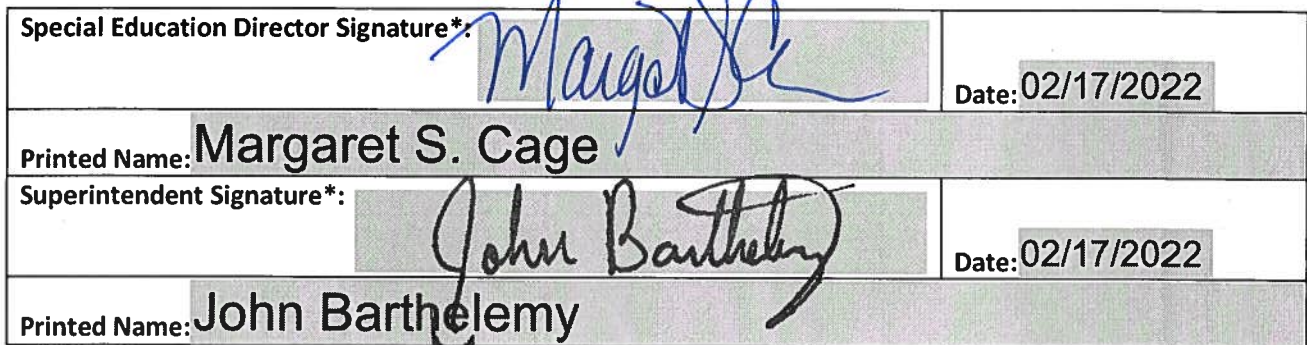 Special Education Director Signature*:
Date: 02/17/2022
Printed Name: Margaret S. Cage
Superintendent Signature*: John Barthelemy
Date: 02/17/2022
Printed Name: John Barthelemy